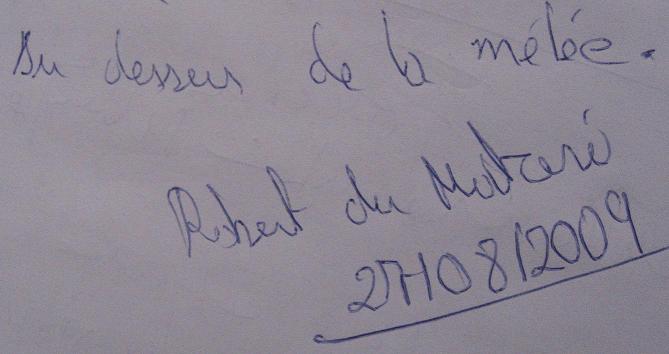 Au dessus de la mélée.
Robert du Motaré
27/08/2009